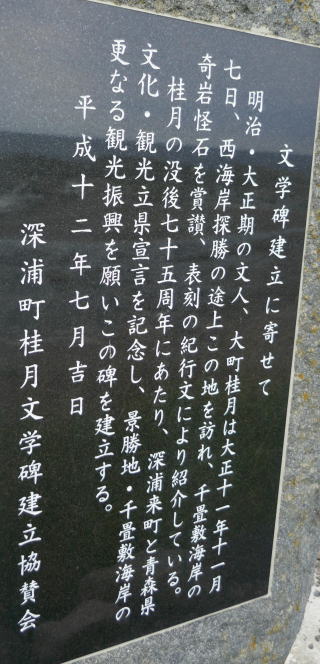 文学碑建立に寄せて
明治・大正期の文人、大町桂月は大正十一年十一月
七日、西海岸探勝の途上この地を訪れ、千畳敷海岸の
奇岩怪石を賞讃、表刻の紀行文により紹介している。
桂月の没後七十五周年にあたり、深浦来町と青森県
文化・観光立県宣言を記念し、景勝地・千畳敷海岸の
更なる観光振興を願いこの碑を建立する。
平成十二年七月吉日
深浦町桂月文学碑建立協賛会